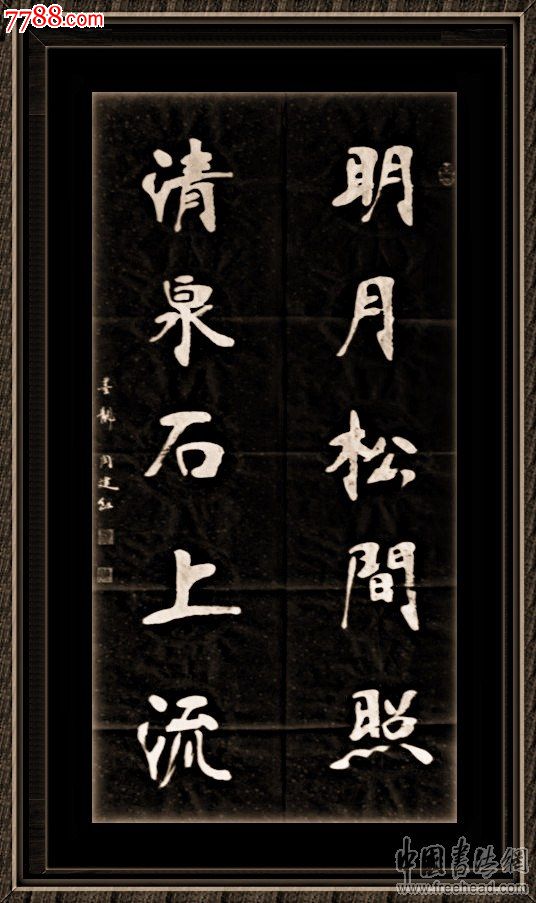 7788.com
明月松間照
清泉石上流
周建
中国書法網
www.freehead.com